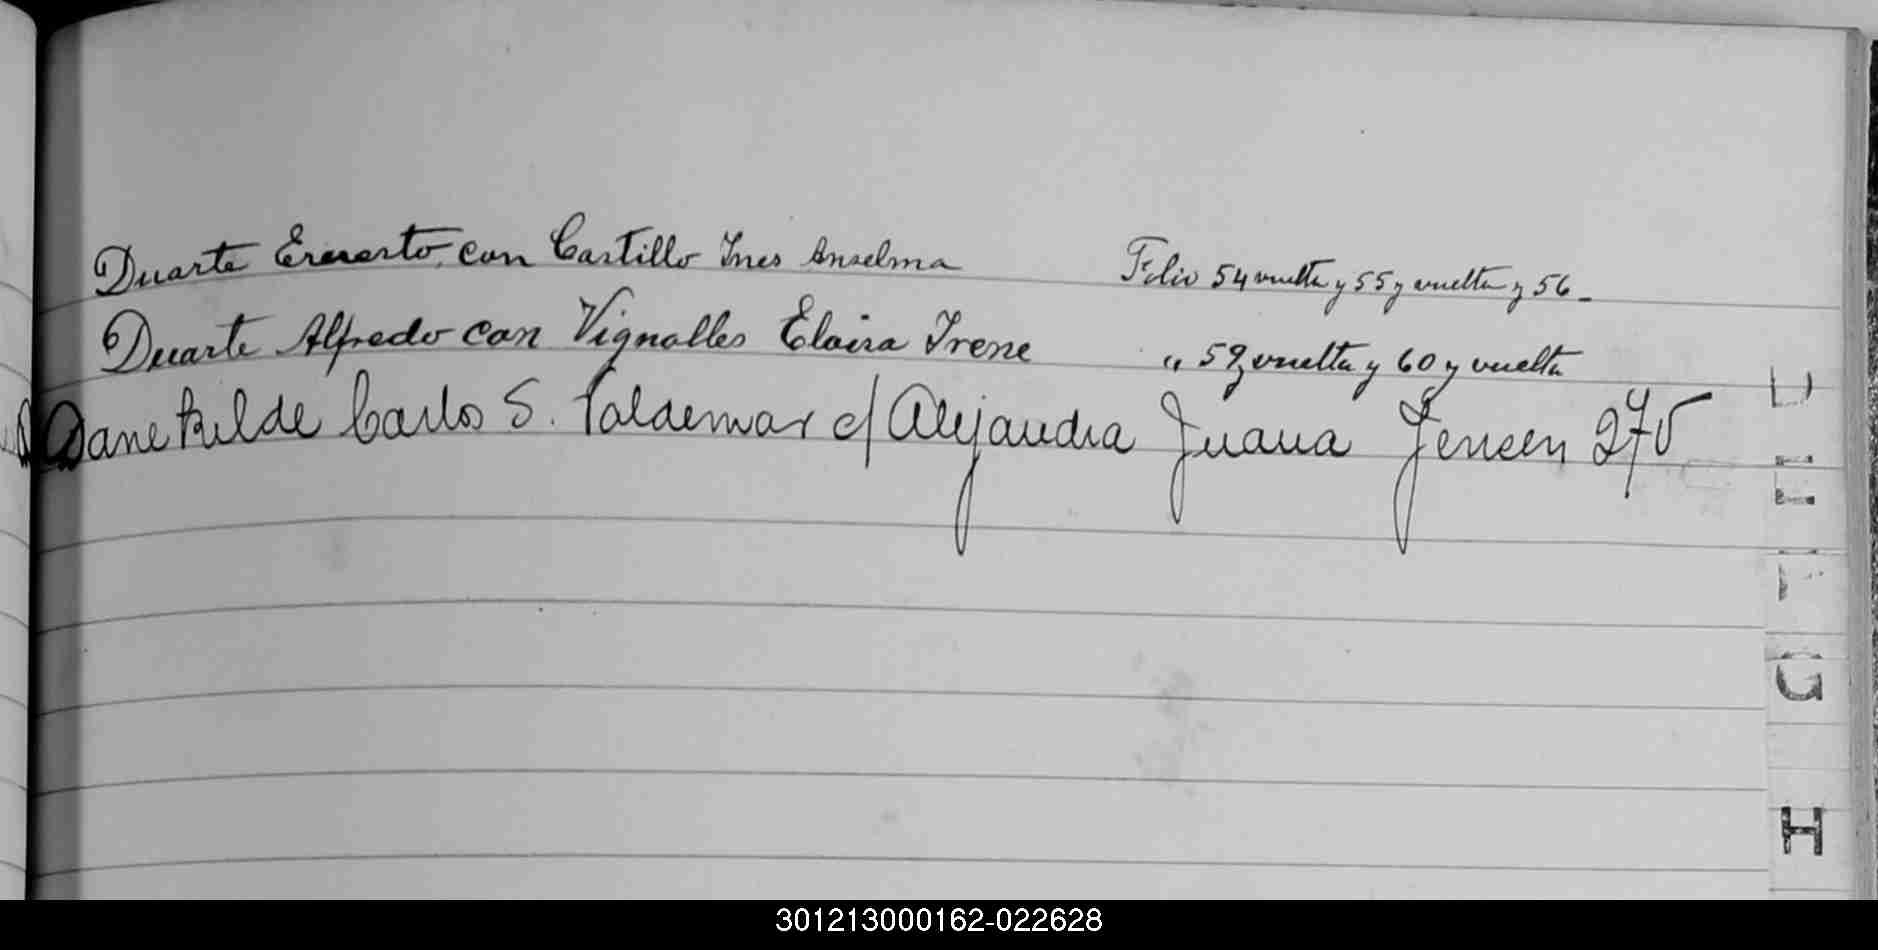 Duarte Ernesto con Castillo Ines Anselma Folio 54 vuelta y 55 y vuelta y 56_
Duarte Alfredo con Vignolles Eloisa Irene " 59 vuelta y 60 y vuelta
Danekilde Carlos S. Valdemar c/ Alejandra Juana Jensen
E
F
G
H
301213000162-022628